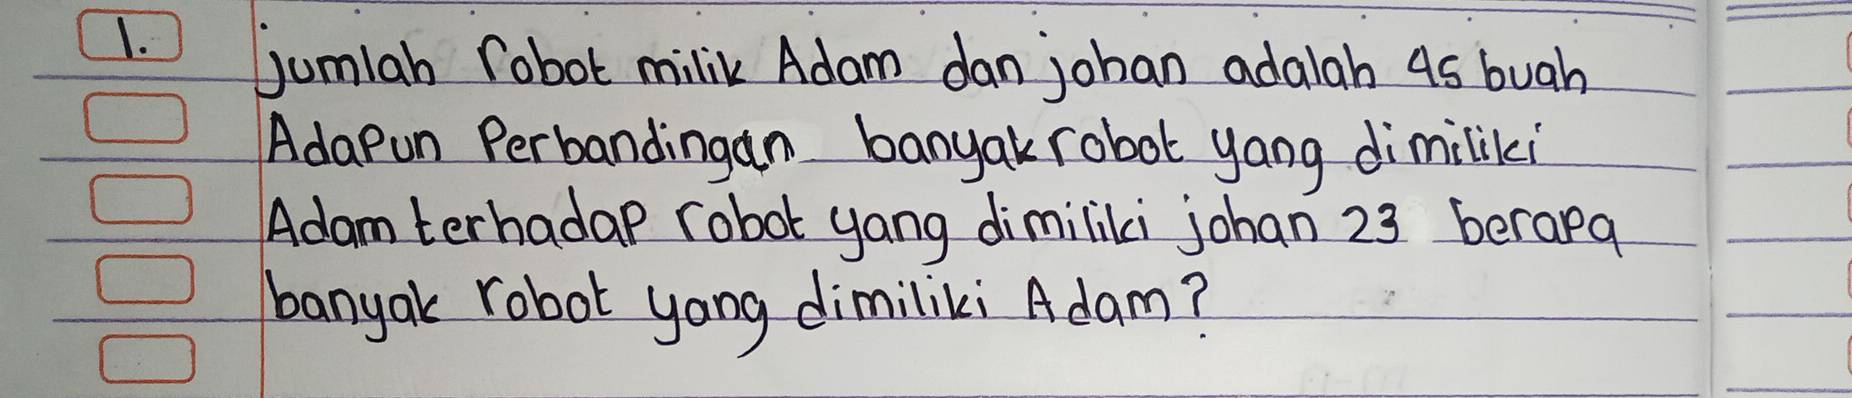 1. jumlah robot milik Adam dan johan adalah 45 buah
Adapun Perbandingan banyak robot yang dimiliki
Adam terhadap robot yang dimiliki johan 23 berapa
banyak robot yang dimiliki Adam?